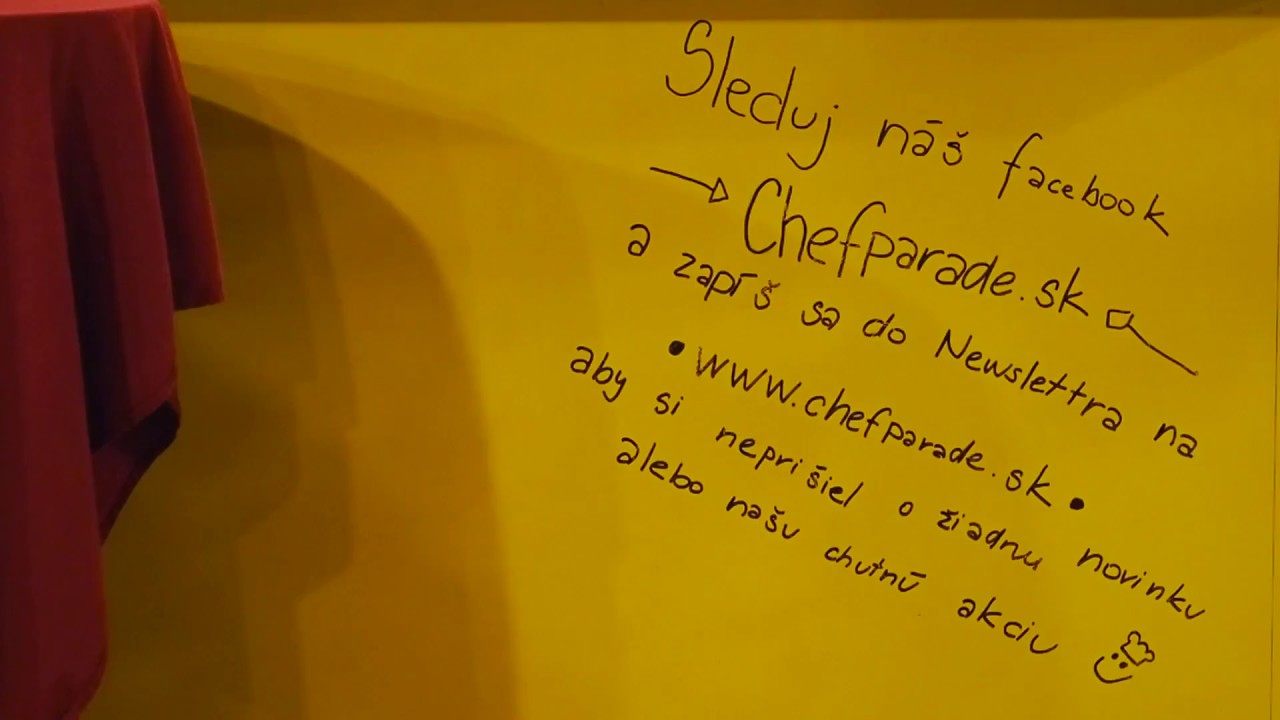 Sleduj náš facebook
Chefparade.sk
a zapíš sa do Newslettra na
• www.chefparade.sk •
aby si neprišiel o žiadnu novinku
alebo našu chutnú akciu